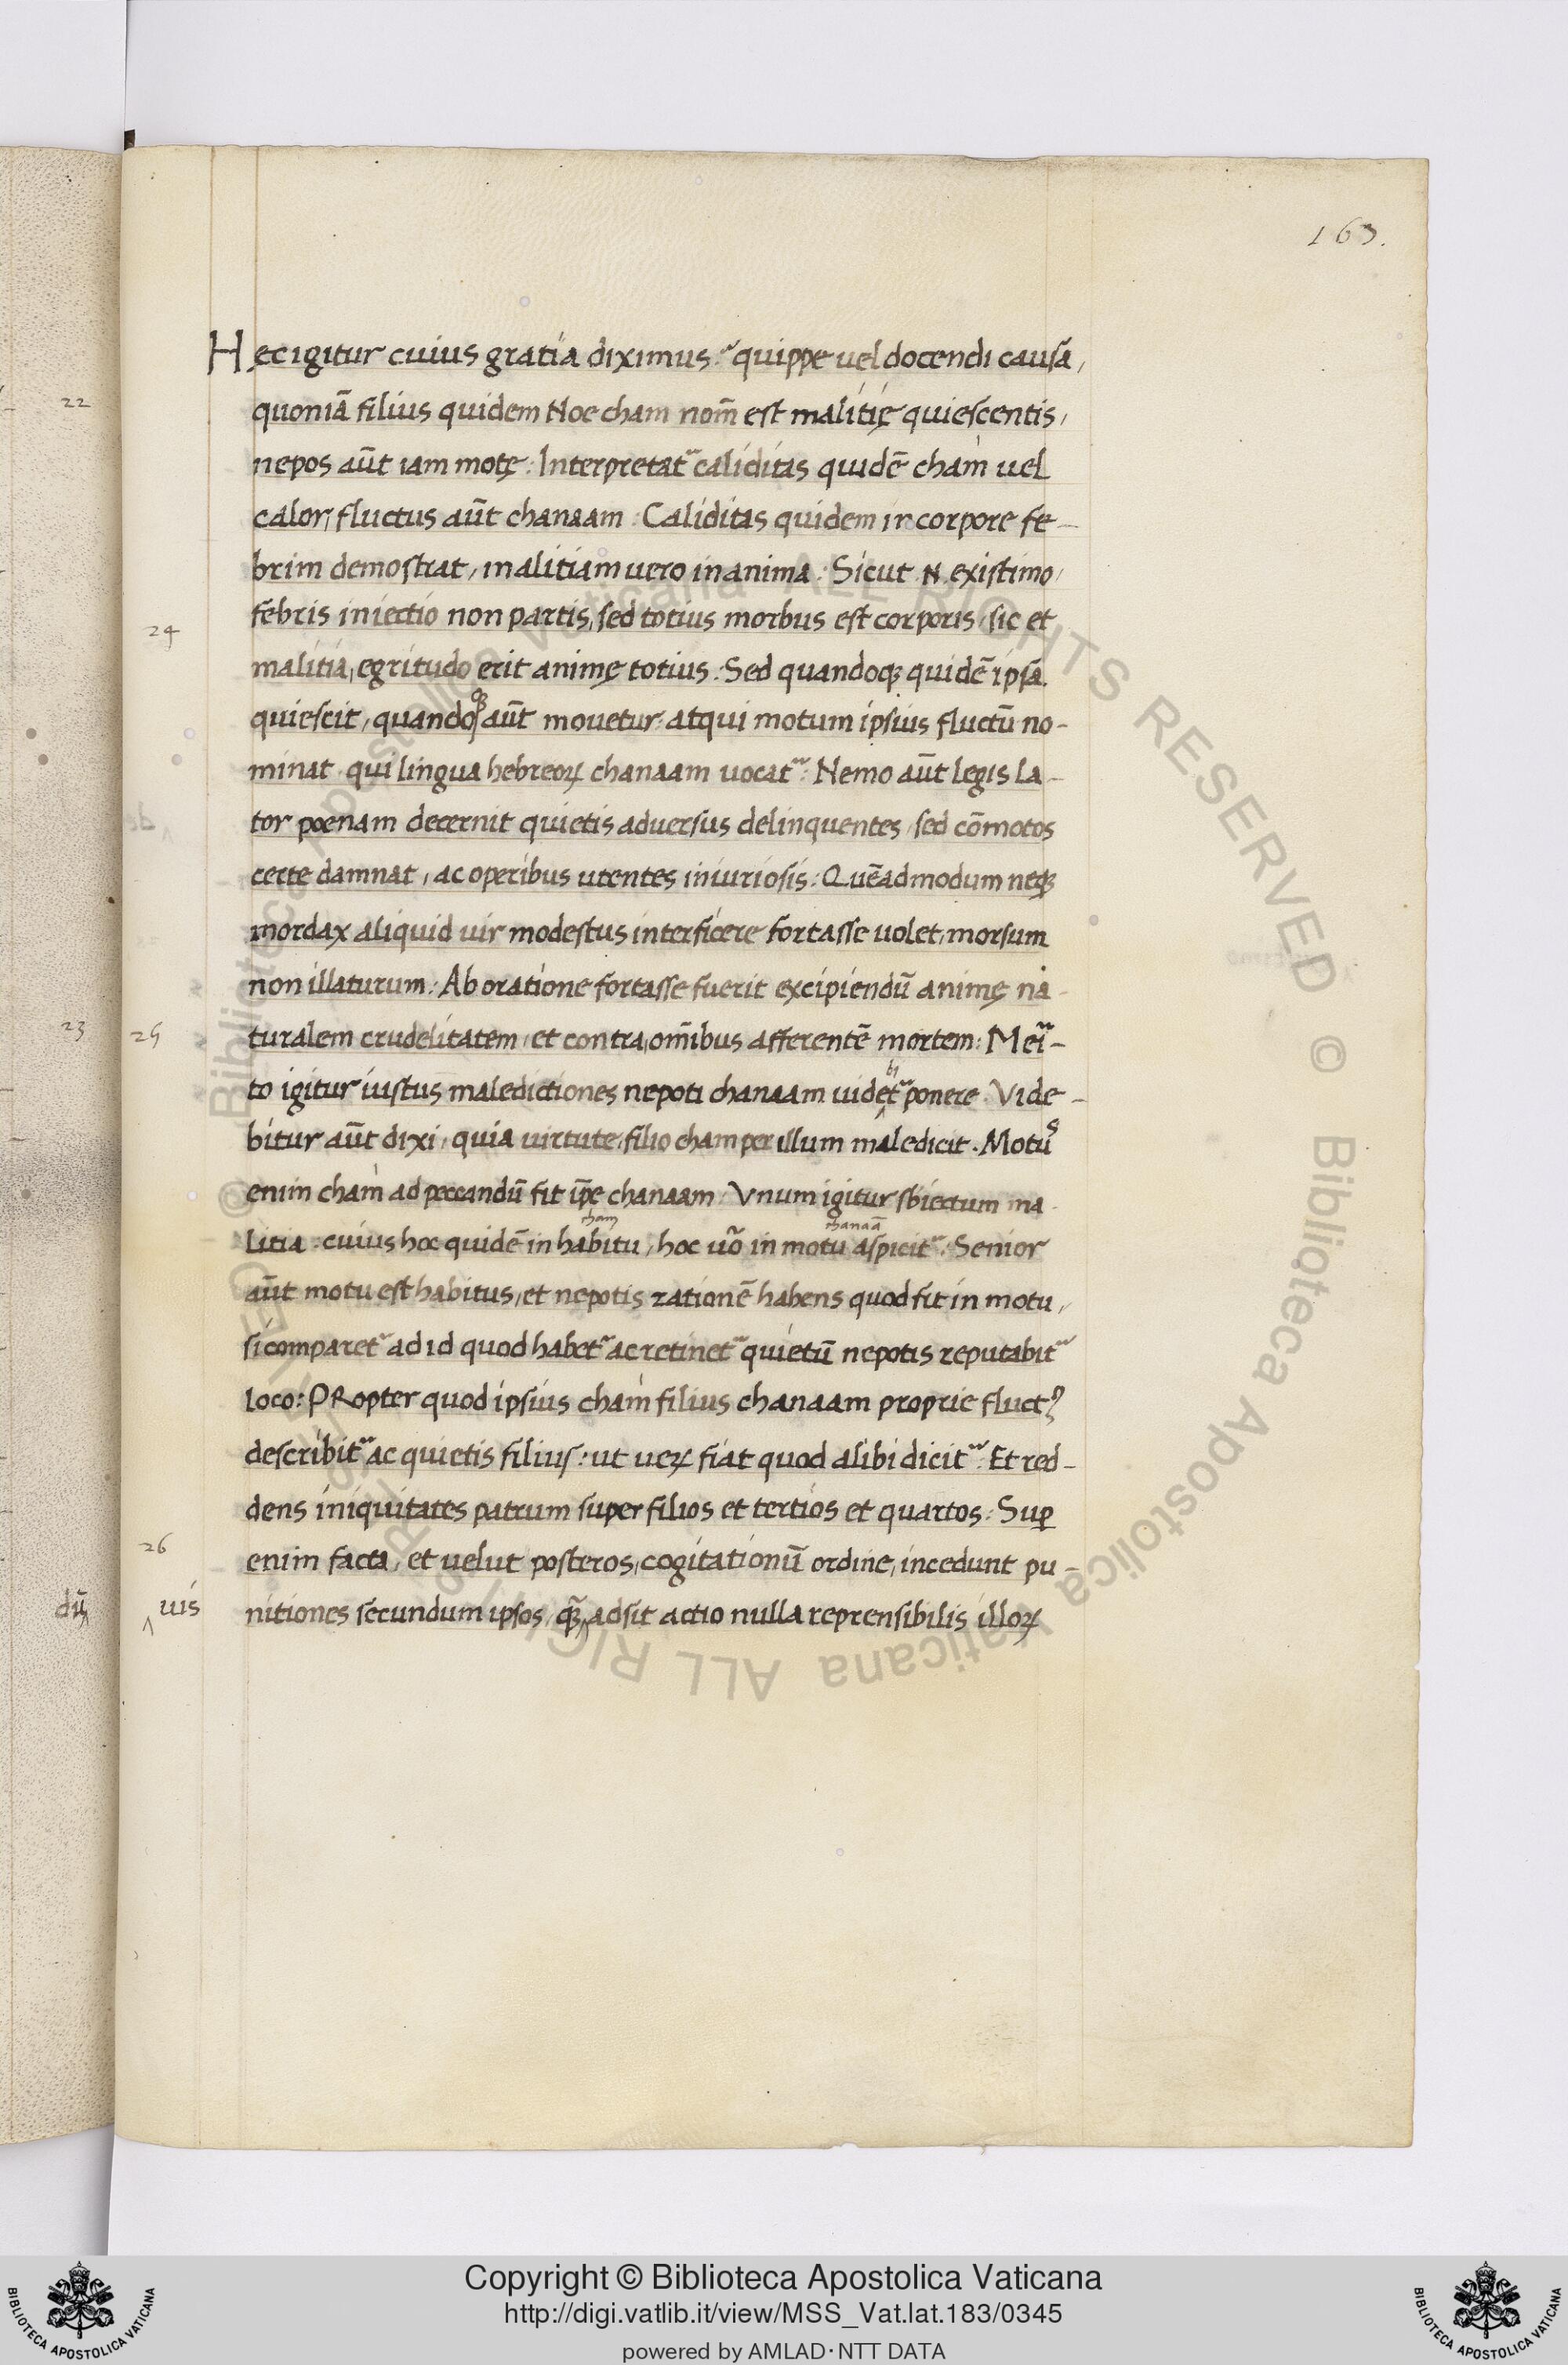 163.
Hec igitur cuius gratia diximus: quippe uel docendi causa,
quoniā filius quidem Noe cham nom̄ est malitię quiescentis,
nepos aūt iam motę: Interpretat᷑ caliditas quidē cham uel
calor, fluctus aūt chanaam: Caliditas quidem in corpore fe-
brim demostrat, malitiam uero in anima: Sicut .N. existimo,
febris iniectio non partis, sed totius morbus est corporis, sic et
malitia, egritudo erit animę totius: Sed quandoqꝫ quidē ipsā
quiescit, quandoqꝫ aūt mouetur: atqui motum ipsius fluctū no-
minat qui lingua hebreoꝝ chanaam uocat᷑: Nemo aūt legis la-
tor poenam decernit quietis aduersus delinquentes, sed cōmotos
certe damnat, ac operibus utentes iniuriosis: Quēadmodum neqꝫ
mordax aliquid uir modestus interficere fortasse uolet, morsum
non illaturum: Ab oratione fortasse fuerit excipiendū animę na-
turalem crudelitatem, et contra, om̄ibus afferentē mortem: Meri-
to igitur iustus maledictiones nepoti chanaam uidebit᷑ ponere. Vide-
bitur aūt dixi, quia uirtute, filio cham per illum maledicit. Motus
enim cham ad peccandū fit ip̄e chanaam: Vnum igitur sbiectum ma-
cham chanaā
litia: cuius hoc quidē in habitu, hoc uo᷑ in motu aspicit᷑: Senior
aūt motu est habitus, et nepotis rationē habens quod fit in motu,
si comparet᷑ ad id quod habet᷑ ac retinet᷑ quietū nepotis reputabit᷑
loco: PRopter quod ipsius cham filius chanaam proprie fluctꝰ
describit᷑ ac quietis filius: ut ueꝝ fiat quod alibi dicit᷑: Et red-
dens iniquitates patrum super filios et tertios et quartos: Suꝑ
enim facta, et uelut posteros, cogitationū ordine, incedunt pu-
nitiones secundum ipsos, qꝫ̄ adsit actio nulla reprensibilis illoꝝ
22
24
23
25
26
uis
© Biblioteca Apostolica Vaticana ALL RIGHTS RESERVED © Biblioteca Apostolica Vaticana ALL RIGHTS RESERVED
Copyright © Biblioteca Apostolica Vaticana
http://digi.vatlib.it/view/MSS_Vat.lat.183/0345
powered by AMLAD·NTT DATA
BIBLIOTECA APOSTOLICA VATICANA
BIBLIOTECA APOSTOLICA VATICANA